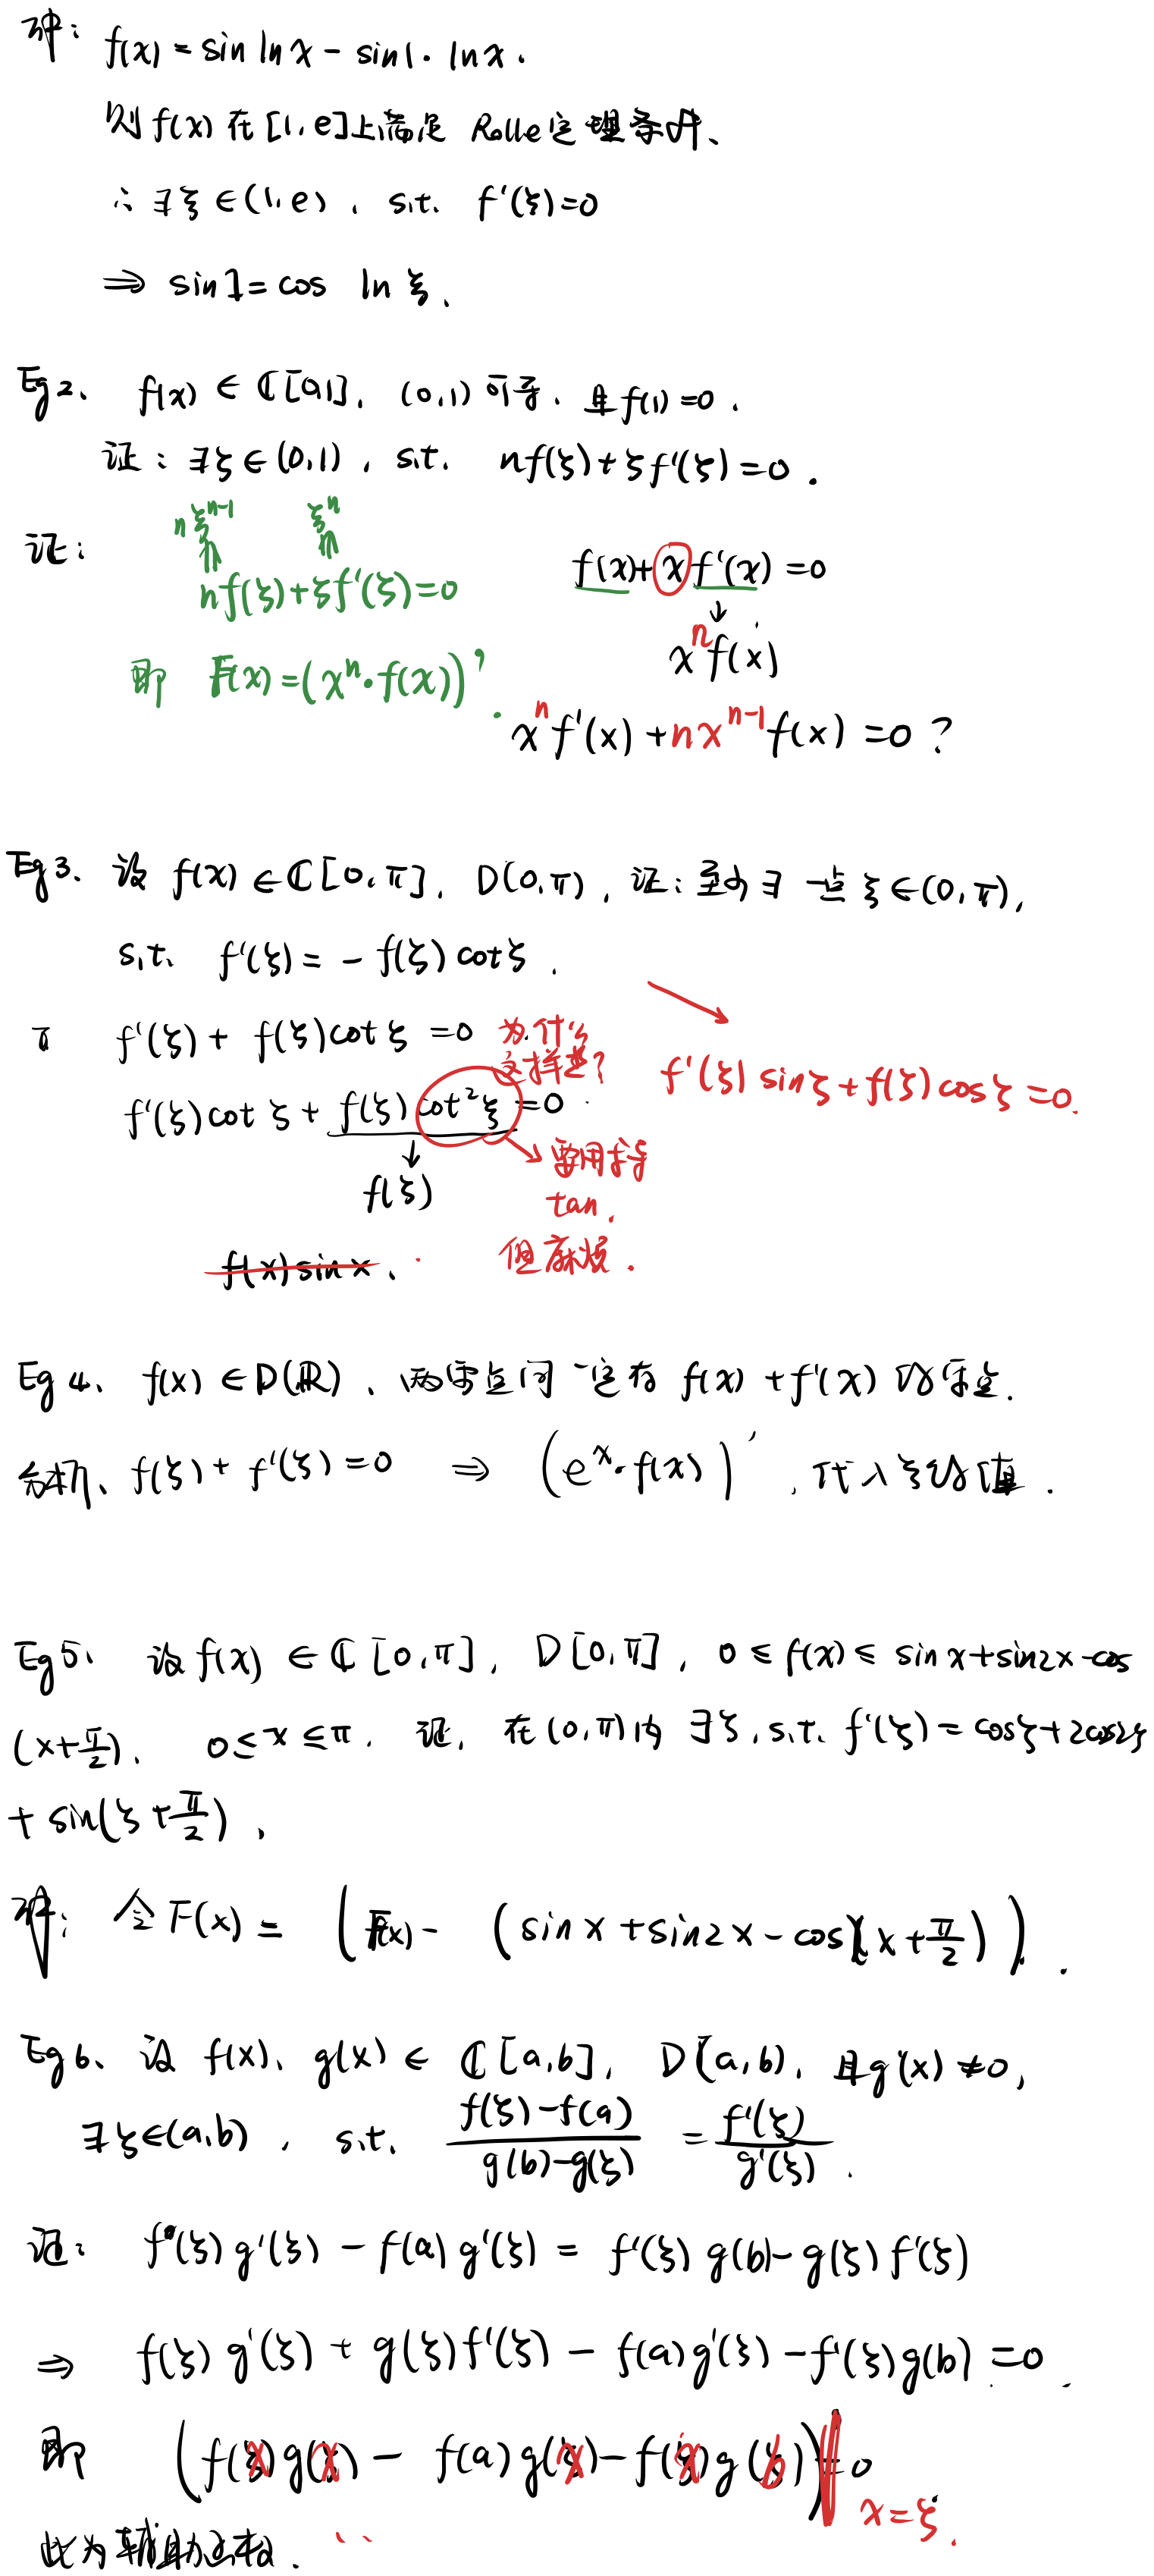 证: f(x) = sin ln x - sin1 · ln x .
则 f(x) 在 [1, e] 上满足 Rolle 定理条件、
∴ ∃ξ ∈ (1, e) , s.t. f'(ξ)=0
⇒ sin1 = cos ln ξ .
Eg 2、 f(x) ∈ C[0,1], (0,1) 可导 . 且 f(1) =0 .
证: ∃ξ ∈ (0,1) , s.t. nf(ξ) + ξf'(ξ) =0 .
证:
nξ^{n-1} ξ^n
nf(ξ)+ξf'(ξ)=0
即 F(x) = (x^n · f(x))' .
f(x)+ x f'(x) =0
↓
x^n f(x)
x^n f'(x) + nx^{n-1} f(x) =0 ?
Eg 3、 设 f(x) ∈ C[0, π], D(0, π) , 证: 至少 ∃ 一点 ξ ∈ (0, π),
s.t. f'(ξ) = - f(ξ) cot ξ .
f'(ξ) + f(ξ) cot ξ = 0
为什么
这样做?
f'(ξ) sin ξ + f(ξ) cos ξ = 0.
f'(ξ) cot ξ + f(ξ) cot² ξ = 0
↓
f(ξ)
→ 要用求导
tan .
但麻烦 .
f(x) sin x .
Eg 4、 f(x) ∈ D(R) 、两零点间一定有 f(x) + f'(x) 的零点.
分析、 f(ξ) + f'(ξ) = 0 ⇒ (e^x · f(x))' , 代入 ξ 的值 .
Eg 5、 设 f(x) ∈ C [0, π], D [0, π], 0 ≤ f(x) ≤ sin x + sin 2x - cos
(x+π/2), 0 ≤ x ≤ π . 证, 在 (0, π) 内 ∃ξ, s.t. f'(ξ) = cosξ + 2cos2ξ
+ sin(ξ + π/2) .
证: 令 F(x) = (f(x) - (sin x + sin 2x - cos(x + π/2)) .
Eg 6、 设 f(x)、g(x) ∈ C [a,b], D(a,b), 且 g'(x) ≠ 0,
∃ξ∈(a,b) , s.t. (f(ξ) - f(a))/(g(b) - g(ξ)) = f'(ξ)/g'(ξ) .
证: f(ξ) g'(ξ) - f(a) g'(ξ) = f'(ξ) g(b) - g(ξ) f'(ξ)
⇒ f(ξ) g'(ξ) + g(ξ) f'(ξ) - f(a) g'(ξ) - f'(ξ) g(b) = 0 .
即 (f(x) g(x) - f(a) g(x) - f(x) g(b))' = 0
x=ξ .
此为辅助函数 .